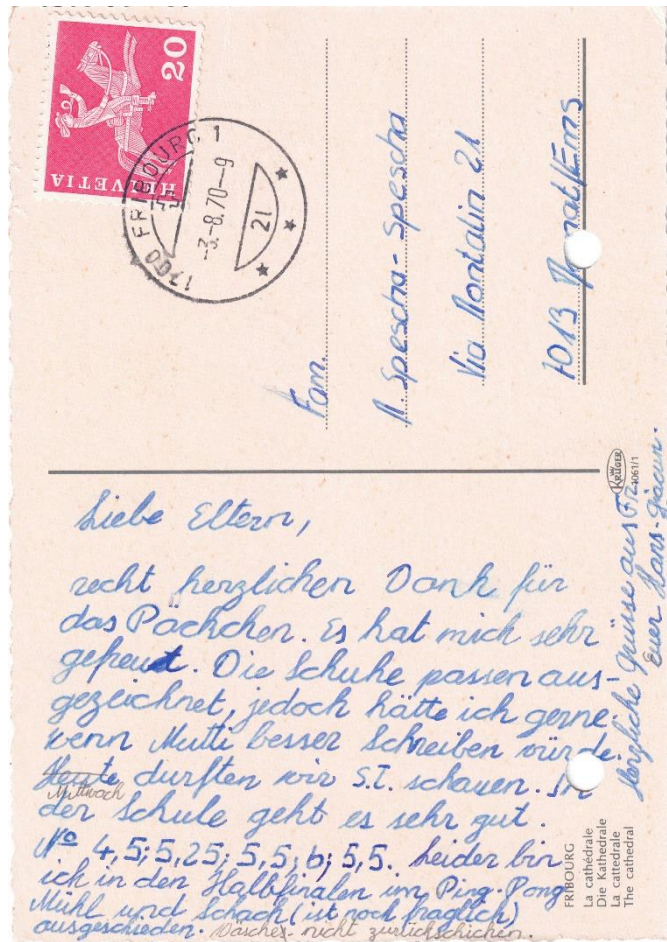 20
HELVETIA
1700 FRIBOURG 1
-3.-8.70--9
21
Fam.
A. Spescha-Spescha
Via Montalin 21
7013 Domat/Ems
Liebe Eltern,
recht herzlichen Dank für
das Päckchen. Es hat mich sehr
gefreut. Die Schuhe passen aus-
gezeichnet, jedoch hätte ich gerne
wenn Mutti besser Schreiben würde.
Heute durften wir S.T. schauen. In
Mittwoch
der Schule geht es sehr gut.
No 4,5; 5,25; 5,5; 6; 5,5. Leider bin
ich in den Halbfinalen im Ping-Pong
Mühl und Schach (ist noch fraglich)
ausgeschieden. nicht zurückschicken.
Herzliche Grüsse aus
Euer Hans-Giacun.
KRÜGER
1061/1
FRIBOURG
La cathédrale
Die Kathedrale
La cattedrale
The cathedral